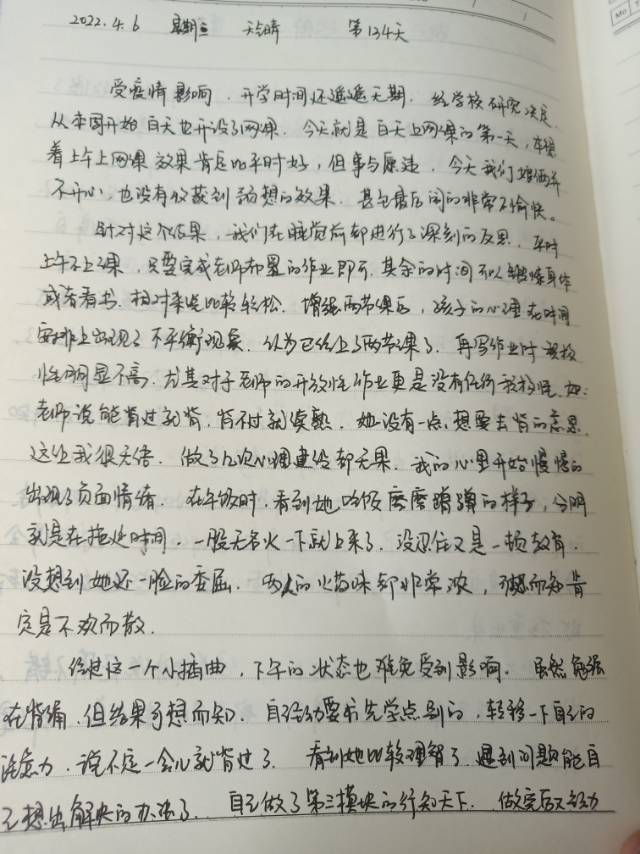 2022.4.6 星期三 天气晴 第134天
受疫情影响,开学时间还遥遥无期。经学校研究决定
从本周开始白天也开设了网课。今天就是白天上网课的第一天,本想
着上午上网课效果肯定比平时好,但事与愿违。今天我们娘俩
不开心,也没有收获到预想的效果。甚至最后闹的非常不愉快。
针对这个结果,我们在睡觉前都进行了深刻的反思。平时
上午不上课,只要完成老师布置的作业即可,其余的时间可以锻炼身体
或者看书,相对来说比较轻松。增强两节课后,孩子的心理在时间
安排上出现了不平衡现象。认为已经上了两节课了,再写作业时积极
性明显不高,尤其对于老师的开放性作业更是没有任何积极性,如:
老师说能背过就背,背不过就读熟。她没有一点想要去背的意思。
这让我很无语。做了几次心理建设都无果。我的心里开始慢慢的
出现了负面情绪。在午饭时,看到她吃饭磨磨蹭蹭的样子,分明
就是在拖延时间,一股无名火一下就上来了,没忍住又是一顿教育。
没想到她还一脸的委屈。两人的火药味都非常浓,可想而知肯
定是不欢而散。
经过这一个小插曲,下午的状态也难免受到影响。虽然勉强
在背诵,但结果可想而知。自己主动要求先学点别的,转移一下自己的
注意力,说不定一会儿就背过了。看到她比较理智了,遇到问题能自
己想出解决的办法了。自己做了第三模块的行知天下。做完后又主动